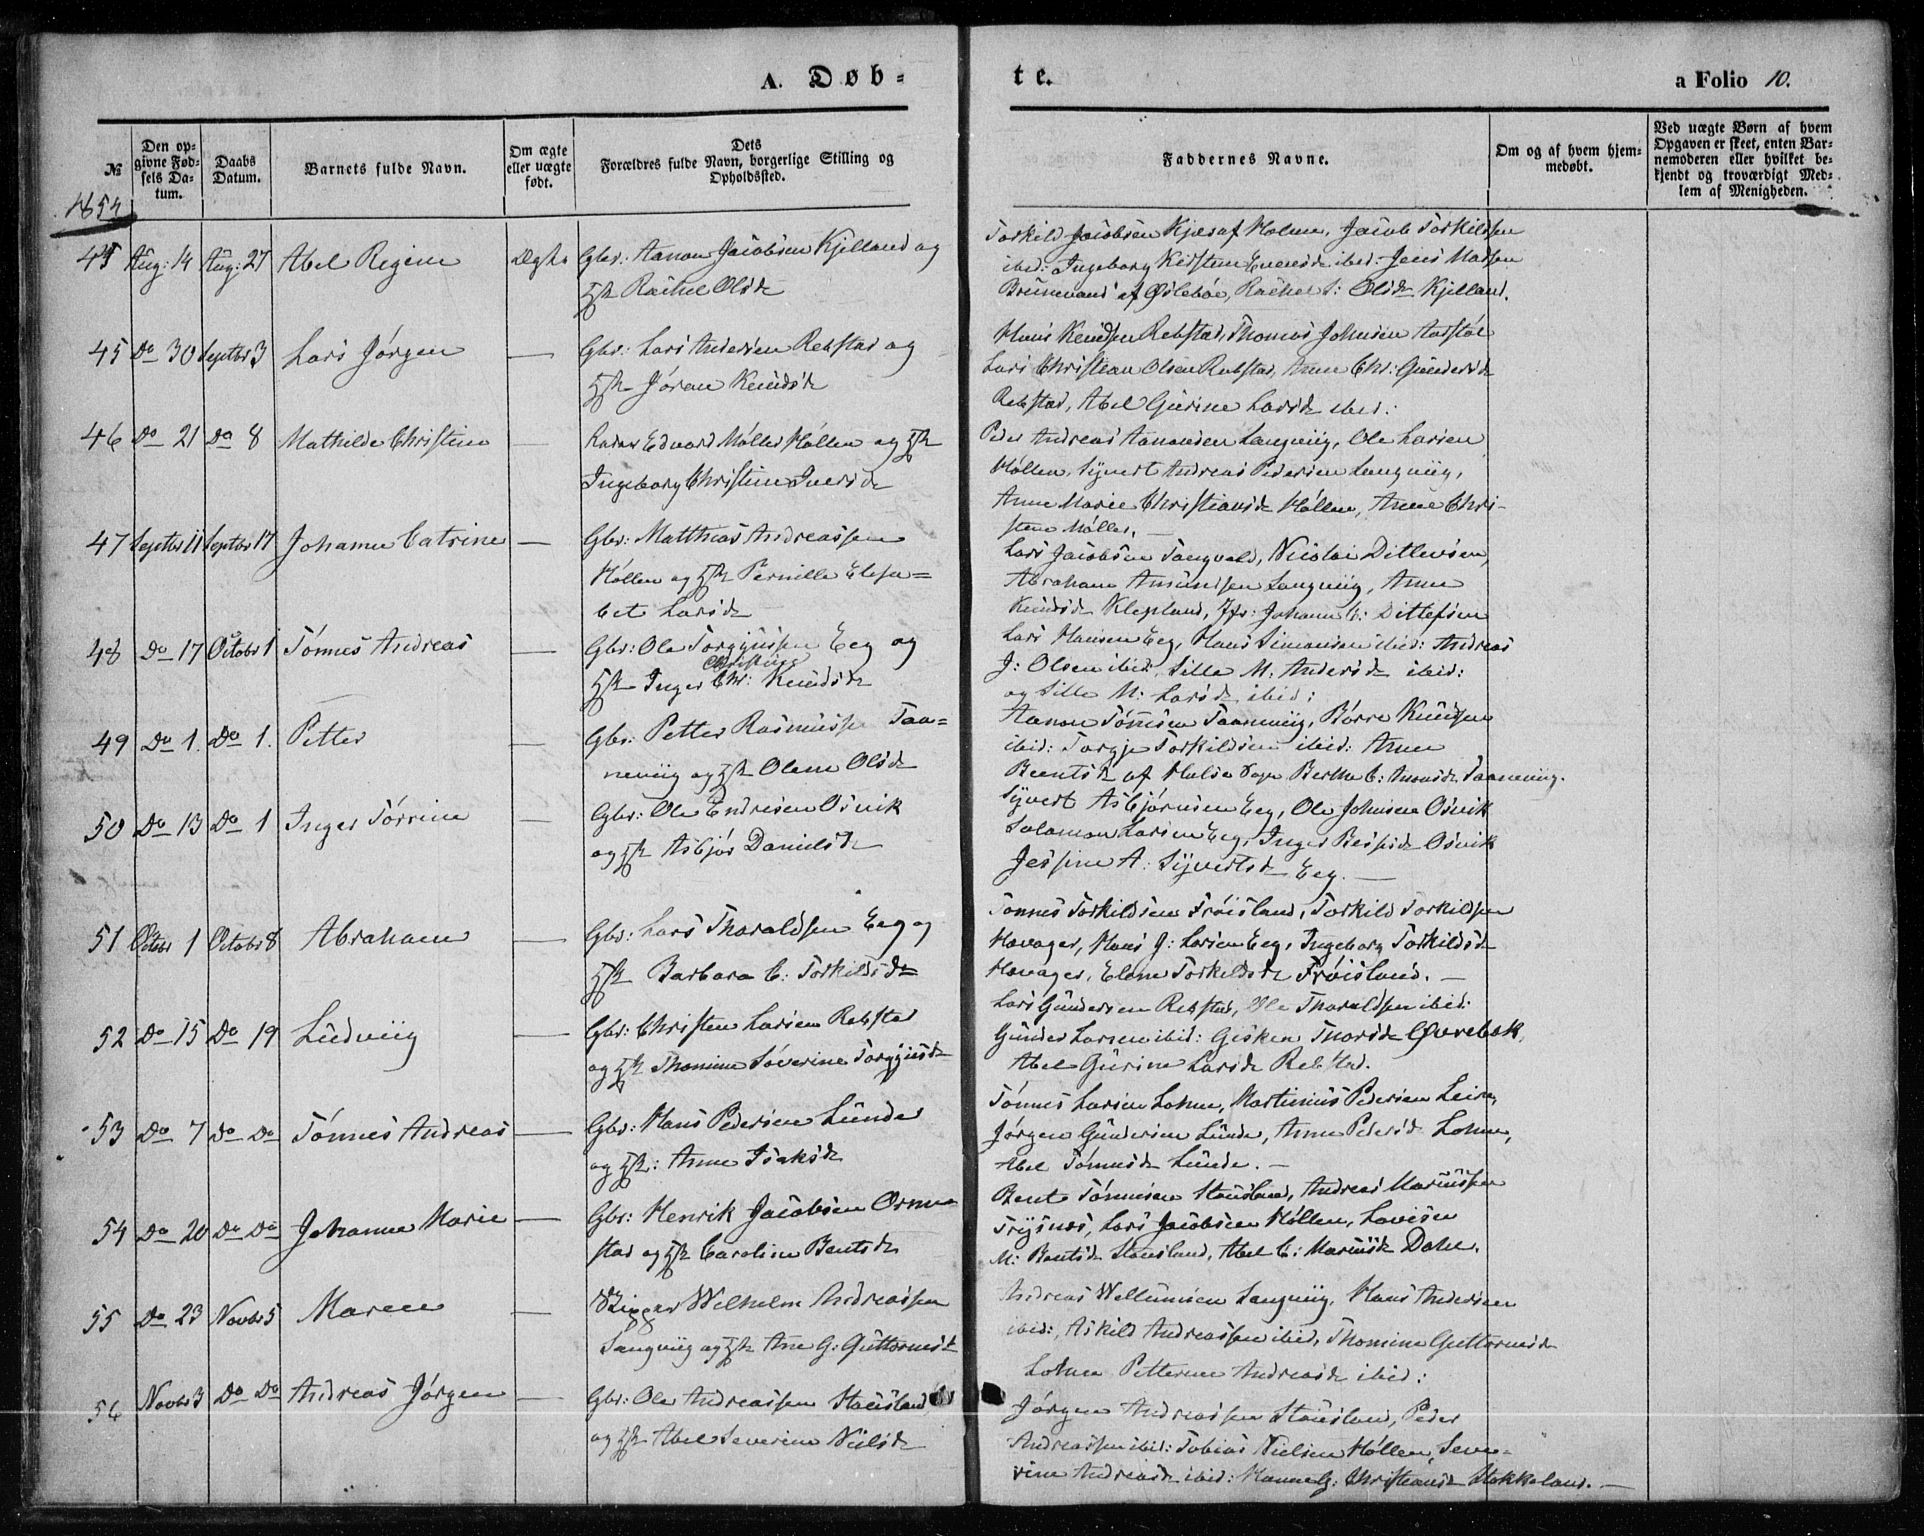 A. Døb-
te.
a Folio 10.
№
Den opgivne Fødsels Datum.
Daabs Datum.
Barnets fulde Navn.
Om ægte eller uægte født.
Dets Forældres fulde Navn, borgerlige Stilling og Opholdssted.
Faddernes Navne.
Om og af hvem hjemmedøbt.
Ved uægte Børn af hvem Opgaven er skeet, enten Barnemoderen eller hvilket bekjendt og troværdigt Medlem af Menigheden.
1854
Aug: 14 Aug: 27 Abel Regine Ægte Gbr: Aanon Jacobsen Kjelland og
Rachel Olsd
Torkild Jacobsen Holme, Jacob Torkildsen
ibid: Ingeborg Kirstine ibid: Jens Madsen
af Øslebøe, Rachel Olsd Kjelland.
45 Do 30 Septbr 3 Lars Jørgen — Gbr: Lars Andersen Rebstad og
Hst Jøran Knudsd
Hans Knudsen Rebstad, Thomas Johnsen
Lars Christian Olsen Rebstad, Anne Chr: Gundersd
Rebstad, Abel Gurine Larsd ibid:
46 Do 21 Do 8 Mathilde Christine — Edvard Møller Høllen og Hst
Ingeborg Christine Iversd
Peder Andreas Aanonsen Langviig, Ole Larsen
Høllen, Syvert Andreas Pedersen Langviig,
Anne Marie Christiansd Høllen, Anne Chri-
stine Møller. —
47 Septbr 11 Septbr 17 Johanne Catrine — Gbr: Matthias Andreassen
Høllen og Hst Pernille Elisa=
bet Larsd
Lars Jacobsen Tangvald, Nicolai Ditlevsen,
Abraham Amundsen Langviig, Anne
Knudsd Klepland, Jfr: Johanne C: Ditlefsen
48 Do 17 Octobr 1 Tønnes Andreas — Gbr: Ole Torgjussen Eeg og
Christine
Hst Inger Chr: Knudsd
Lars Hansen Eeg, Hans Simonsen ibid: Andreas
J: Olsen ibid: Sille M: Andersd ibid:
og Sille M: Larsd ibid:
49 Do 1. Do 1. Petter — Gbr: Petter Rasmussen Taa=
neviig og Hst Olene Olsd
Aanon Tønnesen Taaneviig, Børre Knudsen
ibid: Torgje Torkildsen ibid: Anne
Berntsd af Halse Sogn Berthe C: Taaneviig.
50 Do 13 Do 1 Inger Tørrine — Gbr: Ole Endresen Osvik
og Hst Asbjør Danielsd
Syvert Asbjørnsen Eeg, Ole Johnsen Osvik
Salomon Larsen Eeg, Inger Osvik
Jessine A: Syvertsd Eeg. —
51 Octobr 1 Octobr 8 Abraham — Gbr: Lars Tharaldsen Eeg og
Hst Barbara C: Torkildsd
Tønnes Torkildsen Frøisland, Torkild Torkildsen
Havager, Hans J: Larsen Eeg, Ingeborg Torkildsd
Havager, Elene Torkildsd Frøisland. —
52 Do 15 Do 19 Ludviig — Gbr: Christen Larsen Rebstad
og Hst Thomine Søverine Torgjusd
Lars Gundersen Rebstad, Ole Tharaldsen ibid:
Gunder Larsen ibid: Gisken Thorsd Øvrebøk,
Abel Gurine Larsd Rebstad.
53 Do 7 Do Do Tønnes Andreas — Gbr: Hans Pedersen Lunde
og Hst: Anne Isaksd
Tønnes Larsen Lohne, Martinius Pedersen Leire,
Jørgen Gundersen Lunde, Anne Pedersd Lohne,
Abel Tønnesd Lunde. —
54 Do 20 Do Do Johanne Marie — Gbr: Henrik Jacobsen Orme
stad og Hst Caroline Bentsd
Bent Tønnesen Stausland, Andreas Mariussen
Trysnes, Lars Jacobsen Høllen, Lovise
M: Bentsd Stausland, Abel C: Dahl.
55 Do 23 Novbr 5 Maren — Wilhelm Andreassen
Langviig og Hst Ane G: Guttormsd
Andreas Langviig, Hans Andersen
ibid:, Askild Andreassen ibid, Thomine Guttormsd
Lohne Petterne Andreasd ibid:
56 Novbr 3 Do Do Andreas Jørgen — Gbr: Ole Andreassen Stausland,
og Hst Abel Severine Nielsd
Jørgen Andreassen Stausland, Peder
Andreassen ibid: Tobias Nielsen Høllen, Seve-
rine Andreasd ibid: Hanne G: Christiansd Stokkeland. —